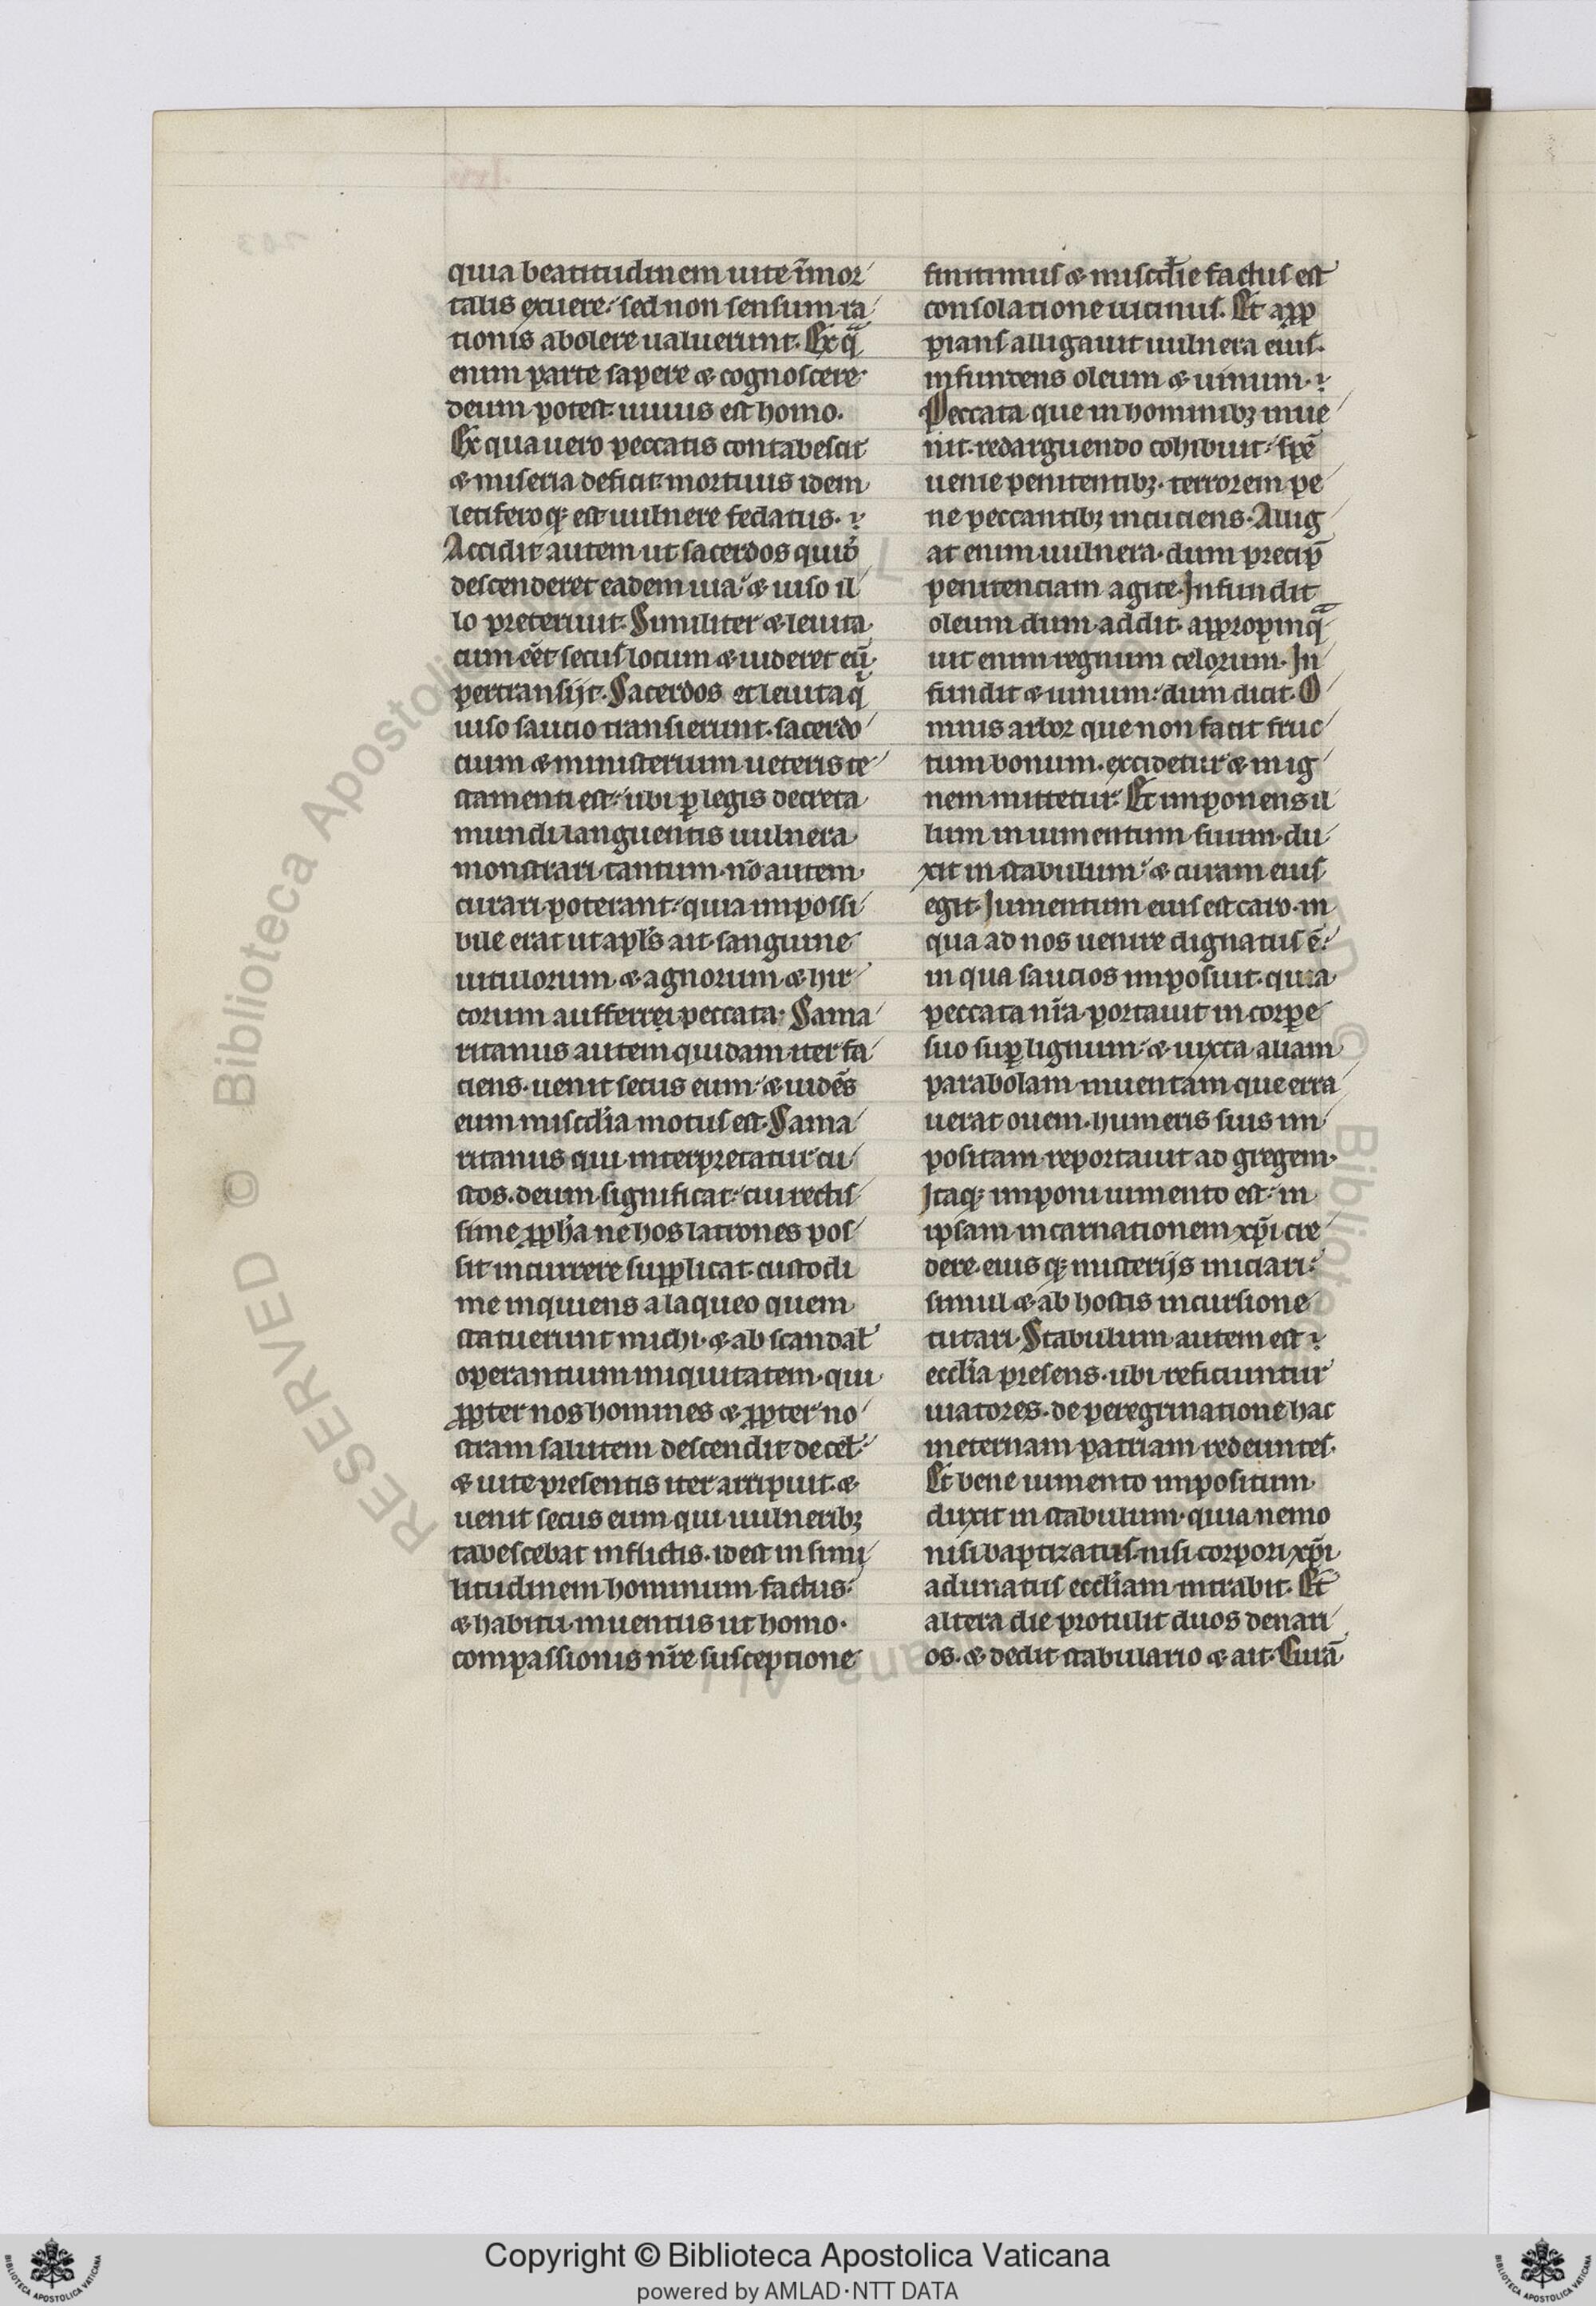 quia beatitudinem uite īmor
talis exuere. sed non sensum ra
tionis abolere ualuerunt. Ex qͣ
enim parte sapere & cognoscere
deum potest. uiuus est homo.
Ex qua uero peccatis contabescit
& miseria deficit. mortuus idem
letifero qꝫ est uulnere fedatus.
Accidit autem ut sacerdos quid̾
descenderet eadem uia. & uiso il
lo preteriuit. Similiter & leuita
cum eēt secus locum & uideret eū.
pertransijt. Sacerdos et leuita qͥ
uiso saucio transierunt. sacerdo
cium & ministerium ueteris te
stamenti est. ubi ꝑ legis decreta
mundi languentis uulnera
monstrari tantum. nō autem
curari poterant. quia impossi
bile erat ut apl̄s ait. sanguine
uitulorum & agnorum & hir
corum aufferrei peccata. Sama
ritanus autem quidam iter fa
ciens. uenit secus eum. & uidēs
eum miscd̄ia motus est. Sama
ritanus qui interpretatur cu
stos. deum significat. cui rectis
sime ꝓph̄a ne hos latrones pos
sit incurrere supplicat. custodi
me inquiens a laqueo quem
statuerunt michi. & ab scandal̄
operantium iniquitatem. qui
ꝓpter nos homines & ꝓpter no
stram salutem descendit de cel̄.
& uite presentis iter arripuit. &
uenit secus eum. qui uulneribꝫ
tabescebat inflictis. id est in simi
litudinem hominum factus.
& habitu inuentus ut homo.
compassionis nr̄e susceptione
finitimus & miscd̄ie factus est
consolatione uicinus. Et apꝓ
pians alligauit uulnera eius.
infundens oleum & uinum.
Peccata que in hominibꝫ inue
nit. redarguendo cohibuit. spē
uenie penitentibꝫ. terrorem pe
ne peccantibꝫ incuciens. Allig
at enim uulnera. dum precip̄
penitenciam agite. Infundit
oleum dum addit. appropinqͣ
uit enim regnum celorum. In
fundit & uinum. dum dicit. O
mnis arbor que non facit fruc
tum bonum. excidetur & in ig
nem mittetur. Et imponens il
lum in iumentum suum. du
xit in stabulum. & curam eius
egit. Jumentum eius est caro. in
qua ad nos uenire dignatus ē.
in qua saucios imposuit. quia
peccata nr̄a portauit in corpe
suo suꝑ lignum. & iuxta aliam
parabolam inuentam que erra
uerat ouem. humeris suis im
positam reportauit ad gregem.
Itaqꝫ imponi iumento est. in
ipsam incarnationem xp̄i cre
dere. eius qꝫ misterijs iniciari.
simul & ab hostis incursione
tutari. Stabulum autem est
eccl̄ia presens. ubi reficiuntur
uiatores. de peregrinatione hac
in eternam patriam redeuntes.
Et bene iumento impositum
duxit in stabulum. quia nemo
nisi baptizatus. nisi corpori xp̄i
adunatus eccl̄iam intrabit. Et
altera die protulit duos denari
os. & dedit stabulario & ait. Curā
Copyright © Biblioteca Apostolica Vaticana
powered by AMLAD·NTT DATA